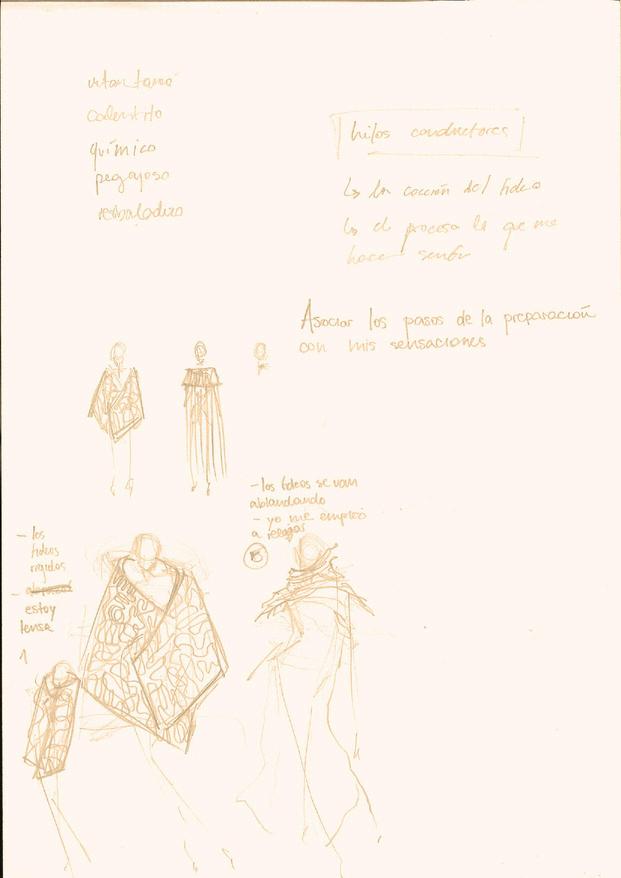 calentito
químico
pegajoso
resbaladizo
hilos conductores
↳ la cocción del fideo
↳ el proceso la que me
hacer sentir
Asociar los pasos de la preparación
con mis sensaciones
- los fideos se van
ablandando
- yo me empiezo
a relajar
B
- los
fideos
rígidos
-
estoy
tensa
1